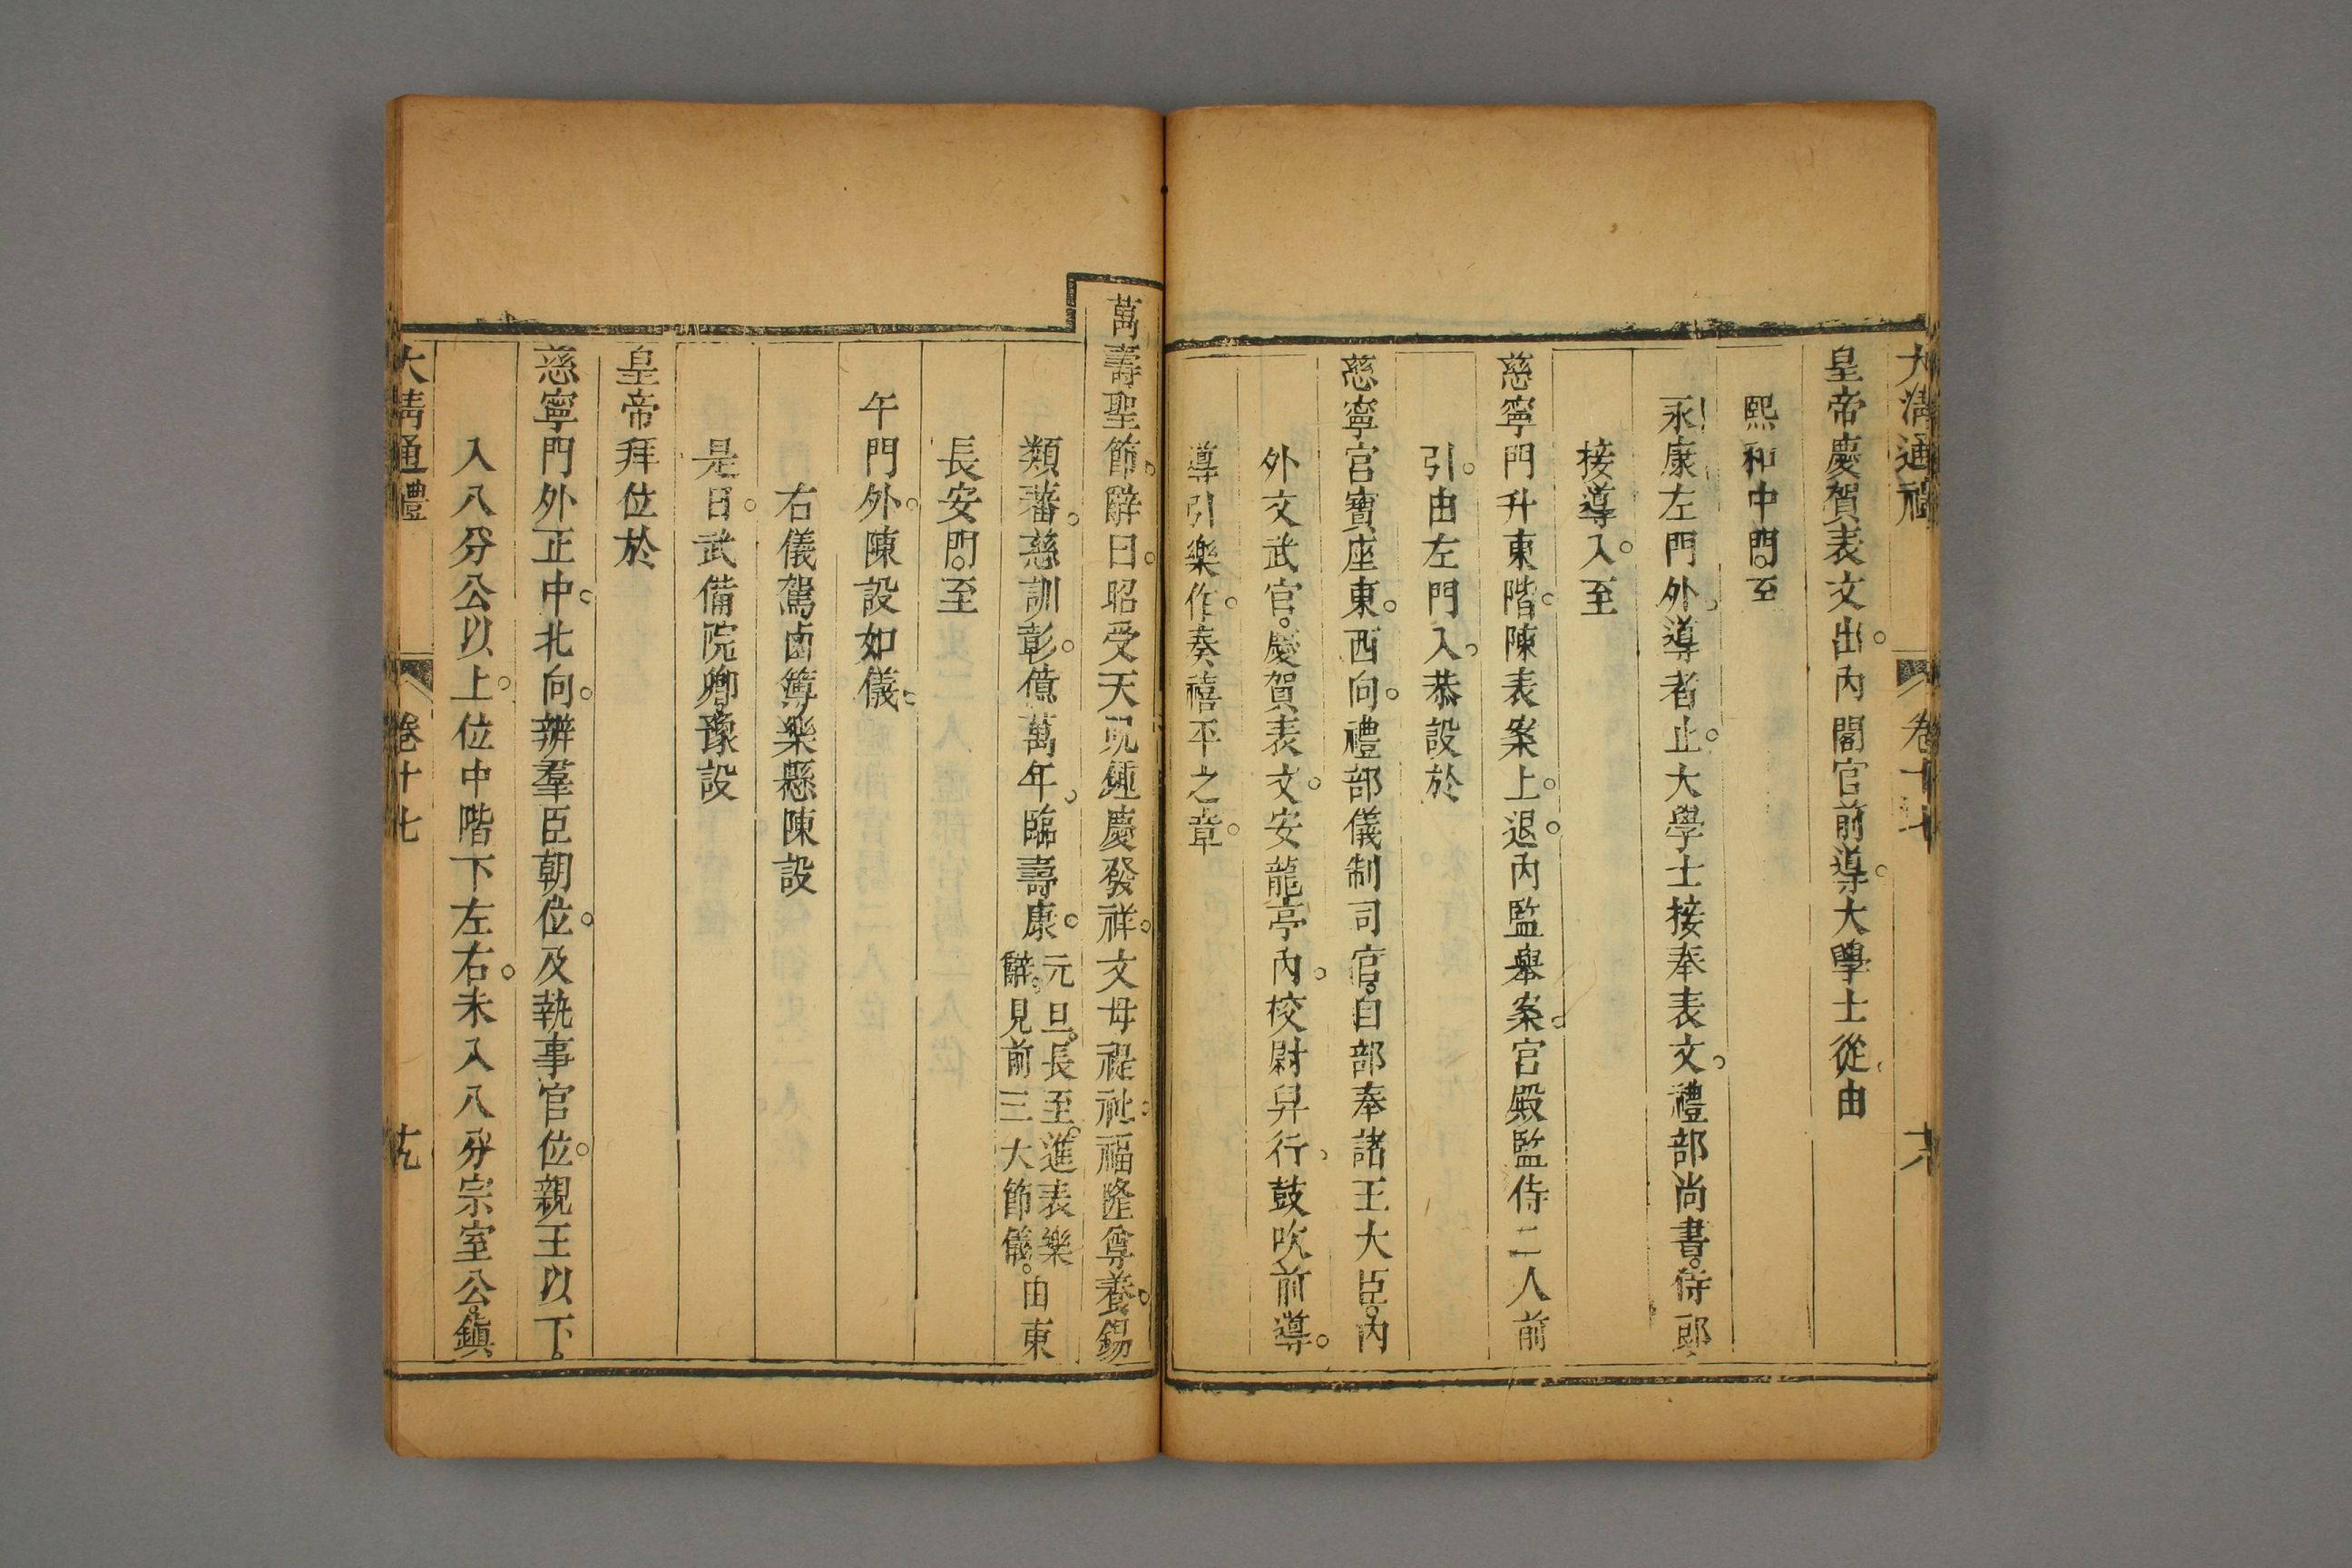 大清通禮 卷十七 大
皇帝慶賀表文出。內閣官前導。大學士從。由
熙和中門。至
永康左門外。導者止。大學士接奉表文。禮部尚書。侍郎。
接導入。至
慈寧門升東階。陳表案上。退。內監舉案。宮殿監侍二人前
引。由左門入。恭設於
慈寧宮寶座東。西向。禮部儀制司官。自部奉諸王大臣。內
外文武官。慶賀表文。安龍亭內。校尉舁行。鼓吹前導。
導引樂作。奏禧平之章。
萬壽聖節。辭曰。昭受天貺鍾慶發祥。文母禔祉。福隆尊養。錫
類蕃。慈訓彰。億萬年。臨壽康。元旦。長至。進表樂辭。見前三大節儀。由東
長安門。至
午門外。陳設如儀。
右儀駕鹵簿樂懸陳設
是日。武備院卿。豫設
皇帝拜位於
慈寧門外正中。北向。辨羣臣朝位。及執事官位。親王以下。
入八分公以上。位中階下左右。未入八分宗室公。鎮
大清通禮 卷十七 九